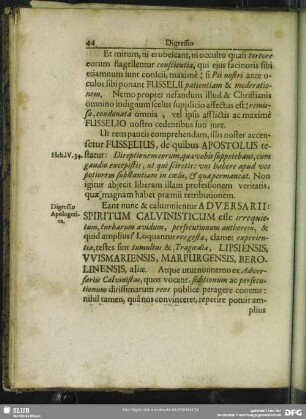 44 Digressio
Et mirum, ni erubescant, ni occulto quasi tortore
eorum flagellentur conscientiæ, qui ejus facinoris sibi
etiamnum sunt conscii, maximè; si Pii nostri ante oculos
sibi ponant FUSSELII patientiam & moderationem.
Nemo propter nefandum illud & Christianis
omnino indignum scelus supplicio affectus est: remissa,
condonata omnia, vel ipsis afflictis ac maximè
FUSSELIO nostro cedentibus suo jure.
Ut rem paucis comprehendam, illis noster accensetur
FUSSELIUS, de quibus APOSTOLUS
Heb. IV. 34.
testatur: Direptionem eorum, quæ vobis suppetebant, cum
gaudio excepistis, ut qui sciretis: vos habere apud vos
potiorem substantiam in cœlis, & quæ permaneat. Non
igitur abjecit liberam illam professionem veritatis,
quæ magnam habet præmii retributionem.
Digressio
Apologetica.
Eant nunc & calumnientur ADVERSARII:
SPIRITUM CALVINISTICUM esse irrequietum,
turbarum avidum, persecutionum authorem, &
quid amplius? Loquantur res gestæ, clamet experientia,
testes sint tumultus & Tragœdiæ, LIPSIENSIS,
VVISMARIENSIS, MARPURGENSIS, BEROLINENSIS,
aliæ. Atque ut ut nonnemo ex Adversariis
Calvinistas, quos vocant, seditionum ac persecutionum
dirissimarum reos publicè peragere conetur:
nihil tamen, quâ nos convinceret, reperire potuit amplius
SLUB
Wir führen Wissen.
DFG
gefördert von der